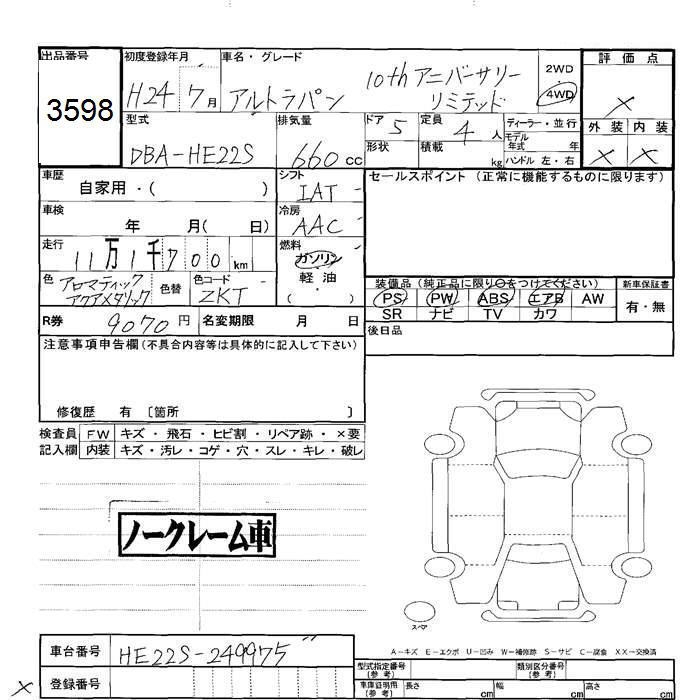 出品番号 初度登録年月 車名・グレード 評価点
3598 H24 7月 アルトラパン 10th アニバーサリー リミテッド 2WD 4WD ×
型式 排気量 ドア 5 定員 4 人 ディーラー・並行 外装 内装
DBA-HE22S 660 cc 形状 積載 kg モデル年式 年 ハンドル 左・右 × ×
車歴 自家用・( ) シフト IAT セールスポイント (正常に機能するものに限ります)
車検 年 月( 日) 冷房 AAC
走行 11万1千700 km 燃料 ガソリン
軽油
色 アロマティック アクアメタリック 色替 色コード ZKT ( )
装備品(純正品に限り○をつけてください) 新車保証書
PS PW ABS エアB AW 有・無
SR ナビ TV カワ
R券 9070 円 名変期限 月 日 後日品
注意事項申告欄(不具合内容等は具体的に記入して下さい)
修復歴 有 〔箇所 〕
検査員 FW キズ・飛石・ヒビ割・リペア跡・×要
記入欄 内装 キズ・汚レ・コゲ・穴・スレ・キレ・破レ
ノークレーム車
スペア
A-キズ E-エクボ U-凹み W-補修跡 S-サビ C-腐食 XX-交換済
車台番号 HE22S-249975
型式指定番号 (参考) 類別区分番号 (参考)
× 登録番号 車庫証明用 (参考) 長さ cm 幅 cm 高さ cm